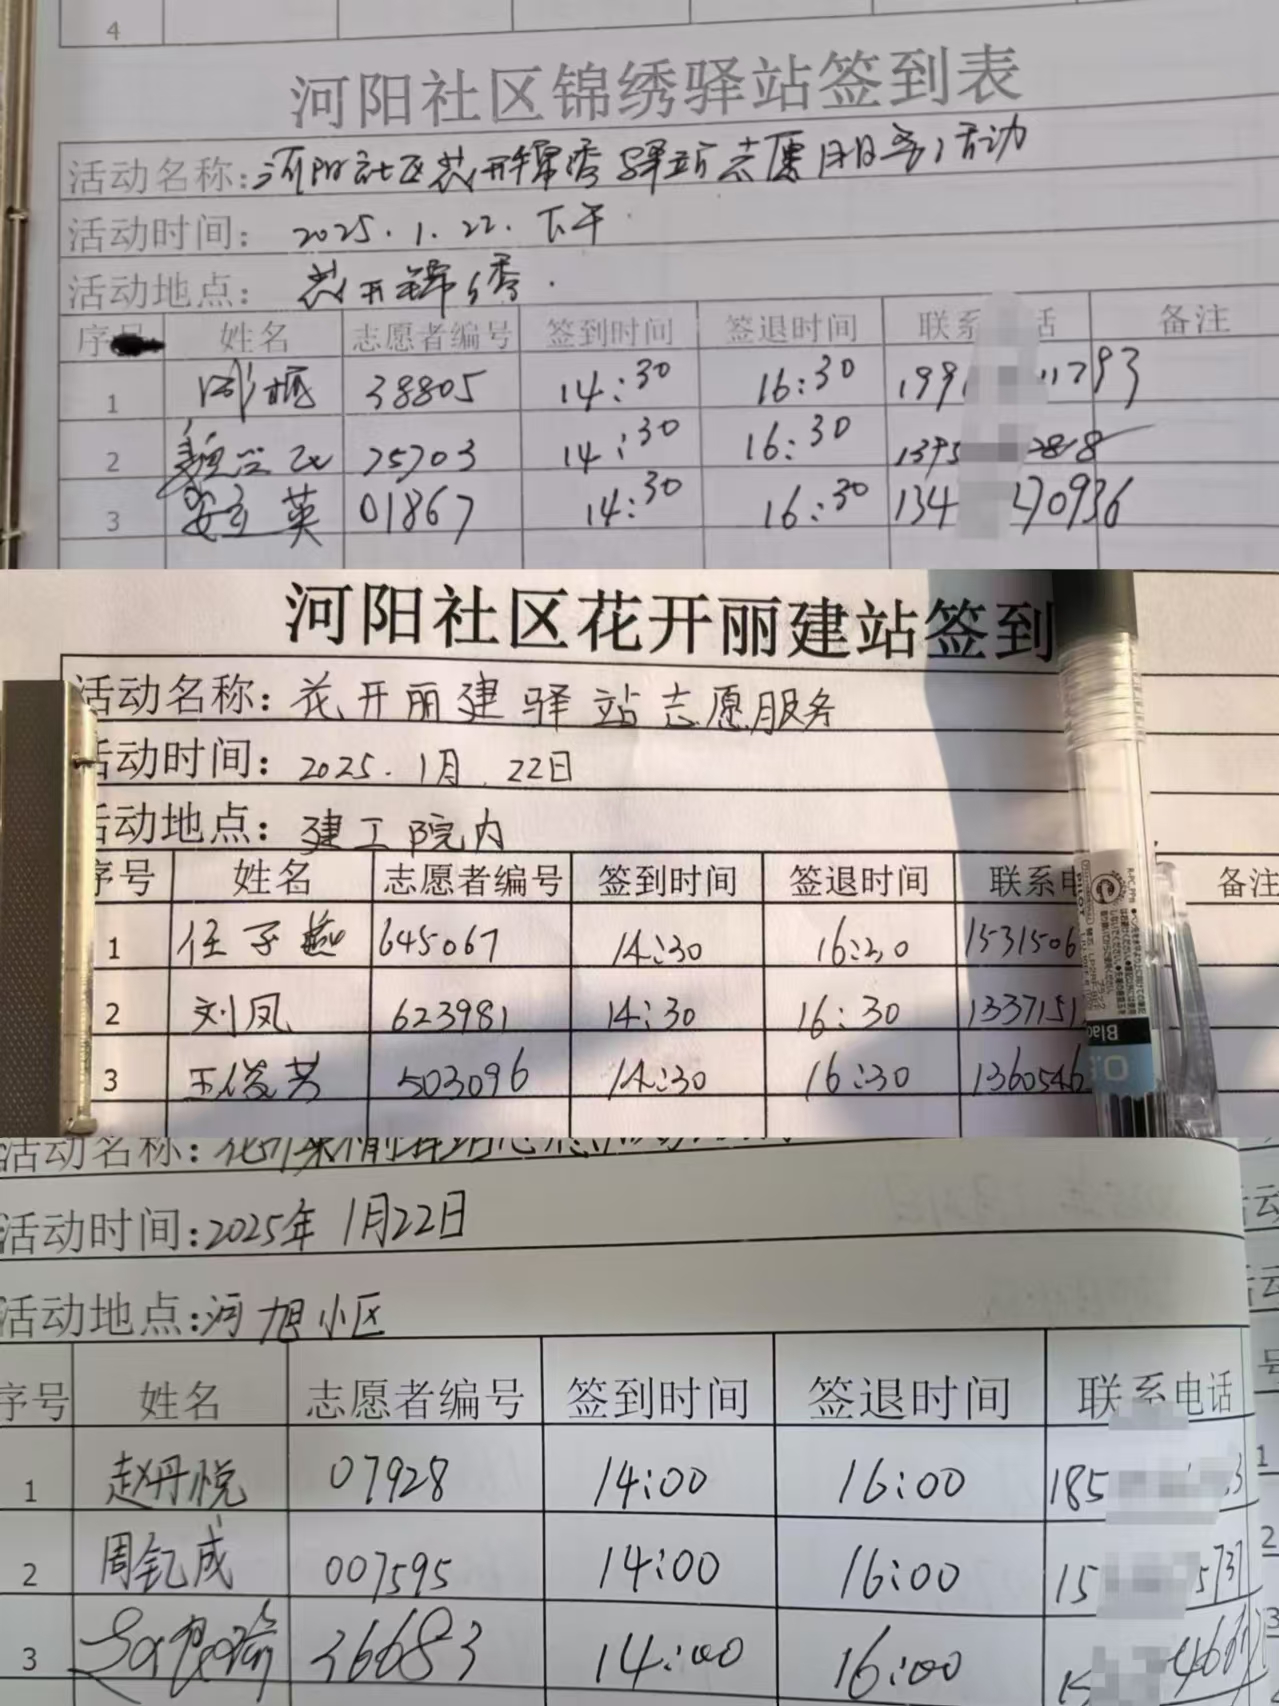 4
河阳社区锦绣驿站签到表
活动名称:河阳社区花开锦秀驿站志愿服务活动
活动时间: 2025.1.22.下午
活动地点: 花开锦绣.
序号 姓名 志愿者编号 签到时间 签退时间 联系 话 备注
1 38805 14:30 16:30 199 1793
2 25703 14:30 16:30 1395 2828
3 安立英 01867 14:30 16:30 134 170936
河阳社区花开丽建站签到
活动名称: 花开丽建驿站志愿服务
活动时间: 2025.1月.22日
活动地点: 建工院内
序号 姓名 志愿者编号 签到时间 签退时间 联系电 备注
1 任子燕 645067 14:30 16:30 1531506
2 刘凤 623981 14:30 16:30 1337151
3 王俊芳 503096 14:30 16:30 1360546
活动名称:
活动时间:2025年1月22日
活动地点:河旭小区
序号 姓名 志愿者编号 签到时间 签退时间 联系电话
1 赵丹悦 07928 14:00 16:00 185 3
2 周钇成 007595 14:00 16:00 15 5737
3 36683 14:00 16:00 15